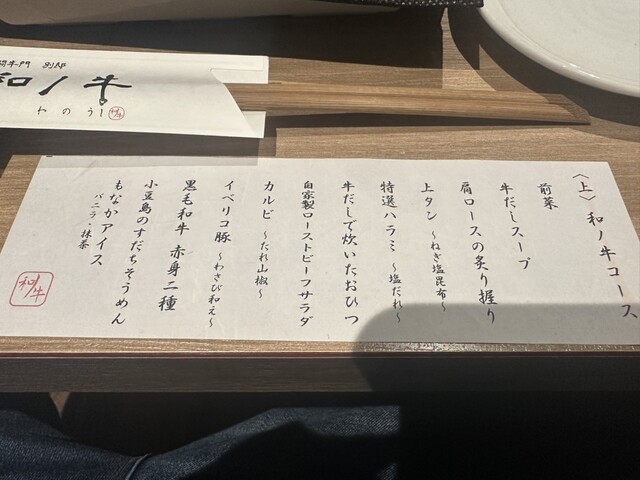 闘牛門 別邸
和ノ牛
わのうし
和牛
〈上〉 和ノ牛コース
前菜
牛だしスープ
肩ロースの炙り握り
上タン ～ねぎ塩昆布～
特選ハラミ ～塩だれ～
牛だしで炊いたおひつ
自家製ローストビーフサラダ
カルビ ～たれ山椒～
イベリコ豚 ～わさび和え～
黒毛和牛 赤身二種
小豆島のすだちそうめん
もなかアイス
バニラ・抹茶
和牛